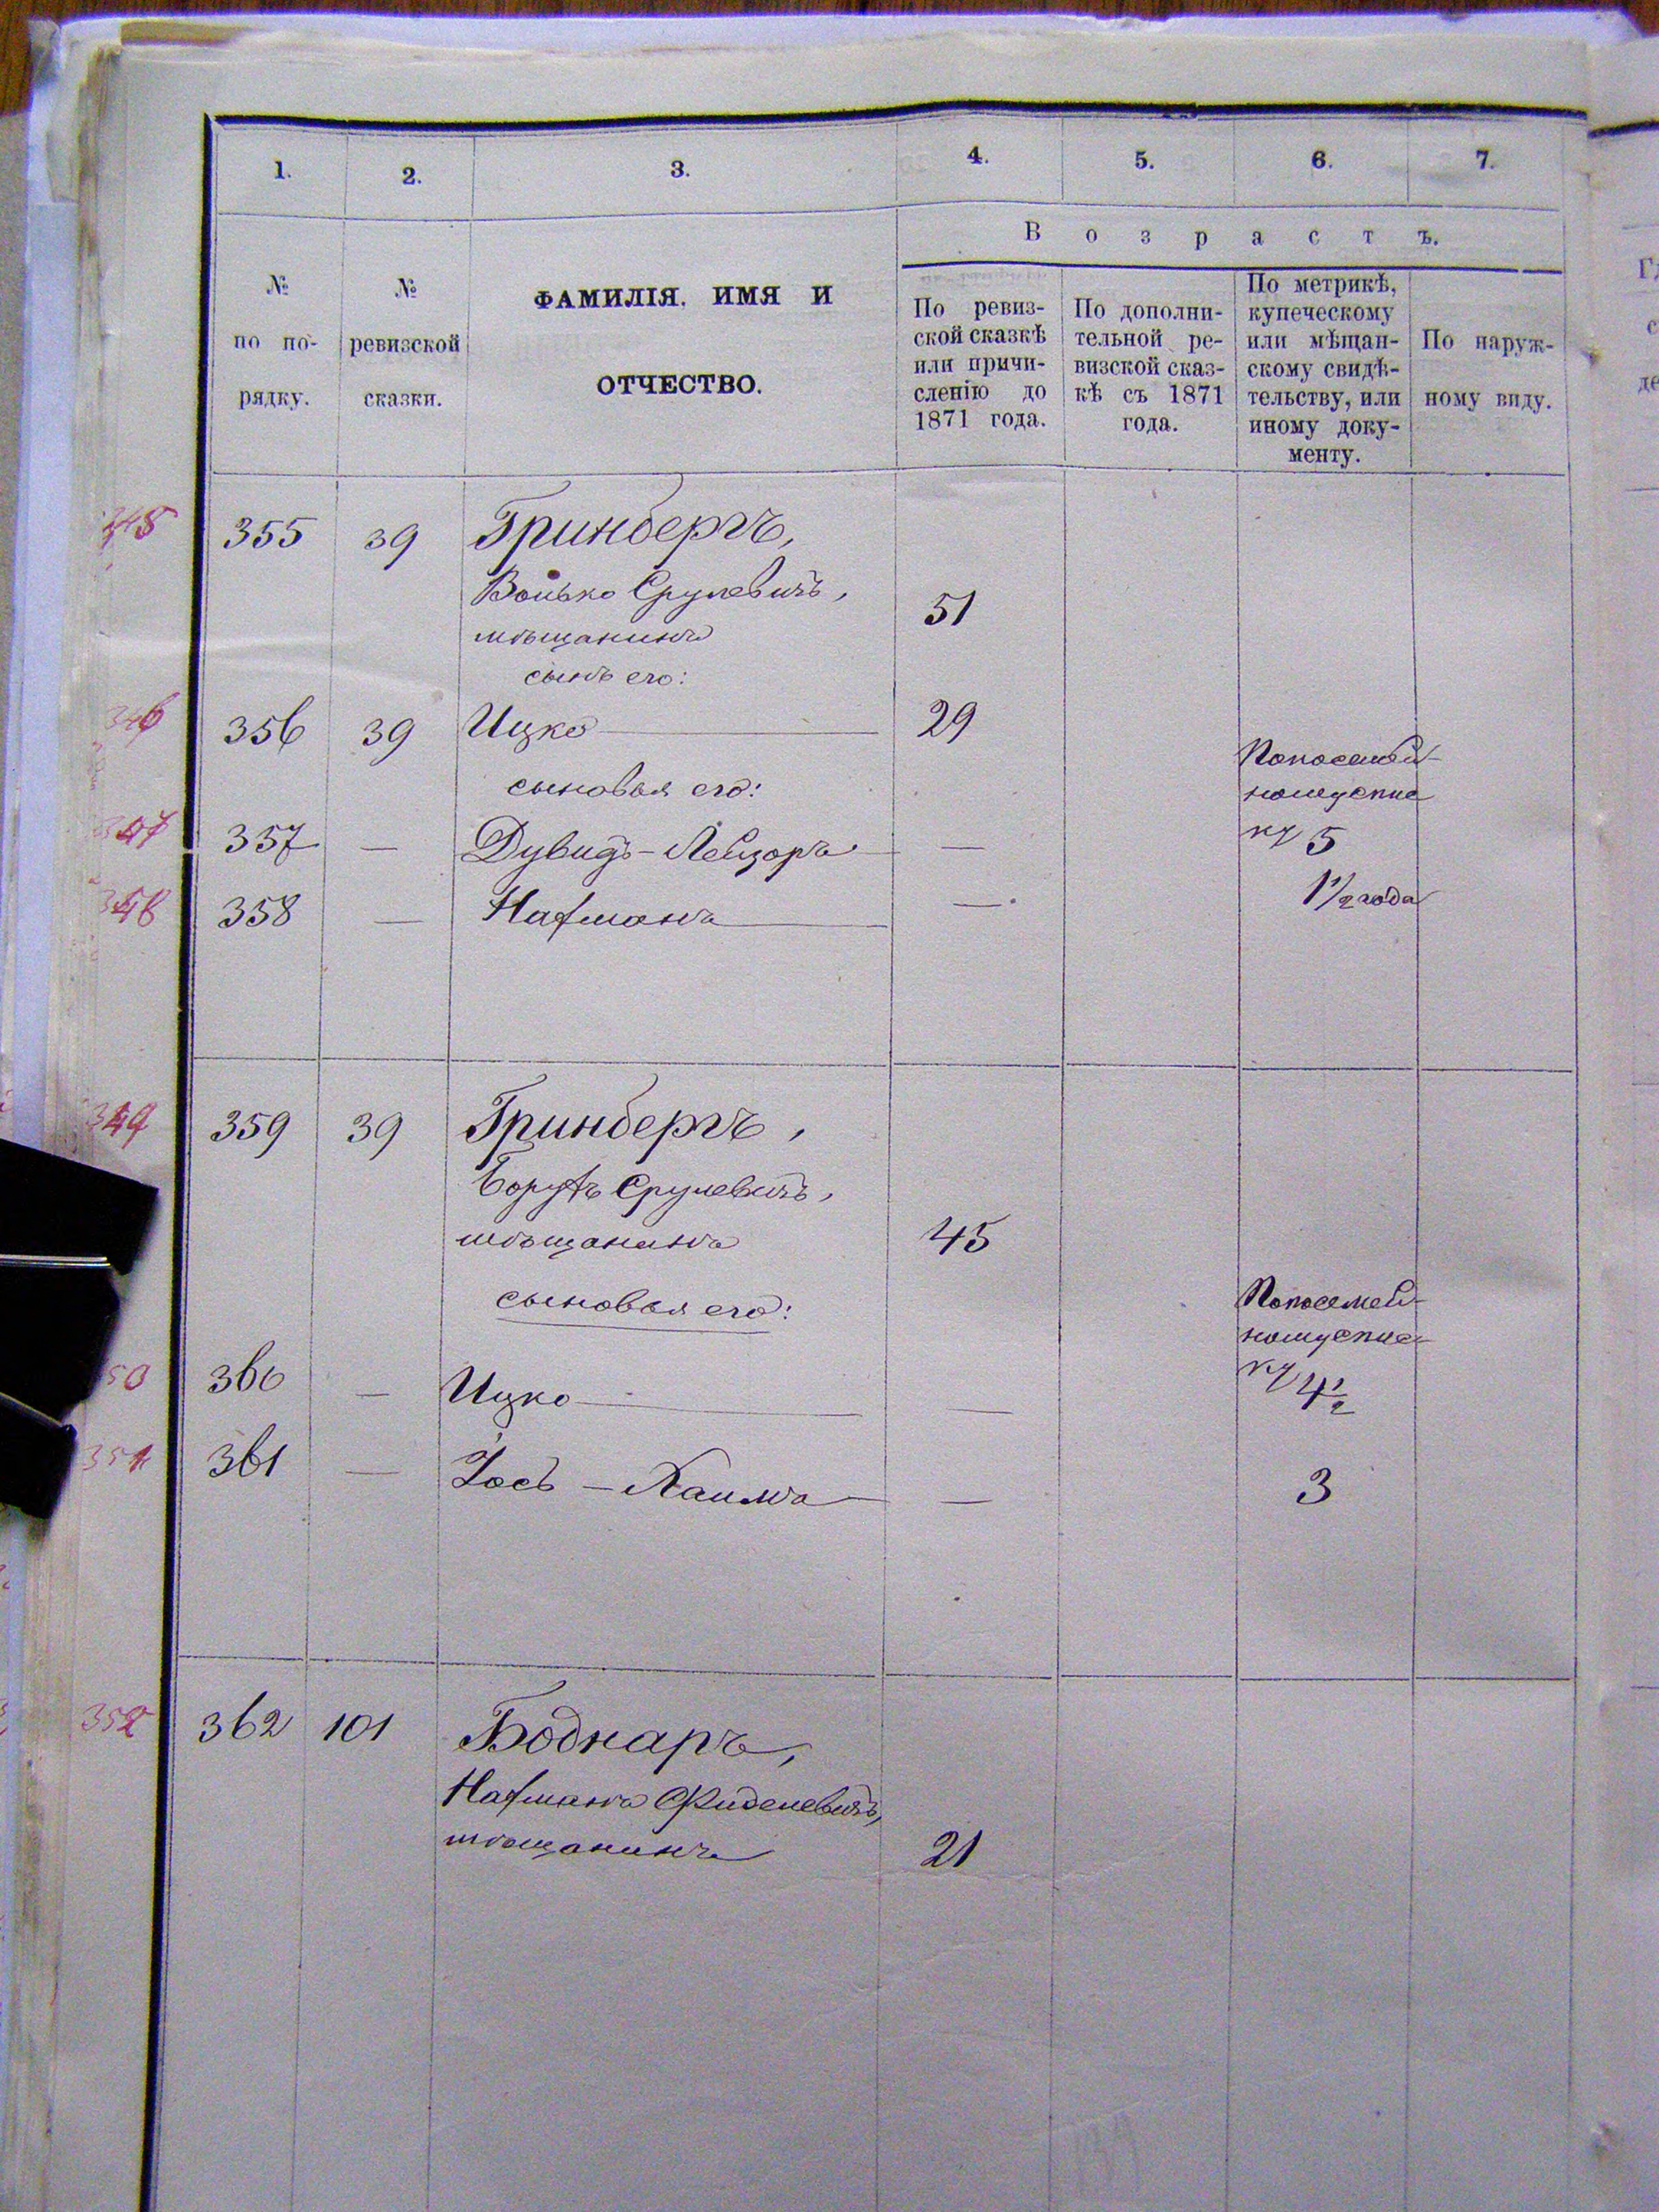 1. 2. 3. 4. 5. 6. 7.
В о з р а с т ъ.
№ по по- рядку.
№ ревизской сказки.
ФАМИЛІЯ, ИМЯ И
ОТЧЕСТВО.
По ревиз-
ской сказкѣ
или причи-
сленію до
1871 года.
По дополни-
тельной ре-
визской сказ-
кѣ съ 1871
года.
По метрикѣ,
купеческому
или мѣщан-
скому свидѣ-
тельству, или
иному доку-
менту.
По наруж-
ному виду.
345 355 39 Гринбергъ,
Волько Срулевичъ, 51
мѣщанинъ
сынъ его:
346 356 39 Ицко 29
сыновья его:
347 357 — Дувидъ-Лейзоръ — 5
348 358 — Нахманъ — 1 1/2 года
349 359 39 Гринбергъ,
Борухъ Срулевичъ,
мѣщанинъ 45
сыновья его:
350 360 — Ицко — 4 1/2
351 361 — Іось - Хаимъ — 3
352 362 101 Боднаръ,
Нахманъ Фиделевичъ,
мѣщанинъ 21